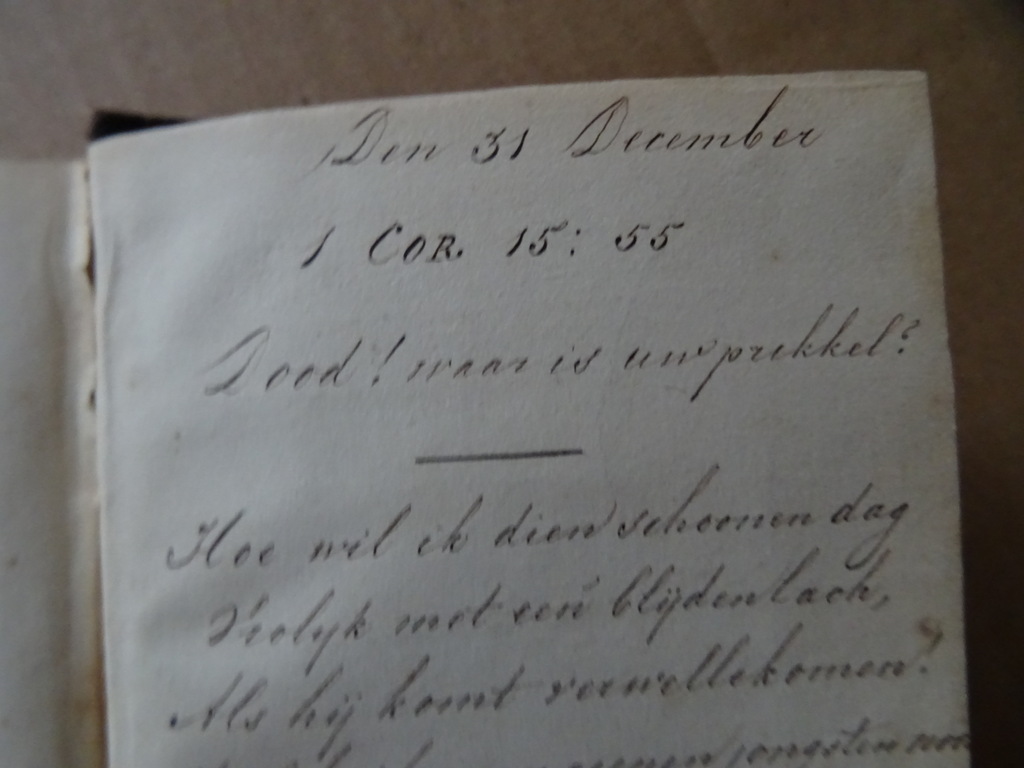 Den 31 December
1 COR. 15: 55
Dood! waar is uw prikkel?
Hoe wil ik dien schoonen dag
Vrolyk met een blijden lach,
Als hij komt verwellekomen!
jongsten